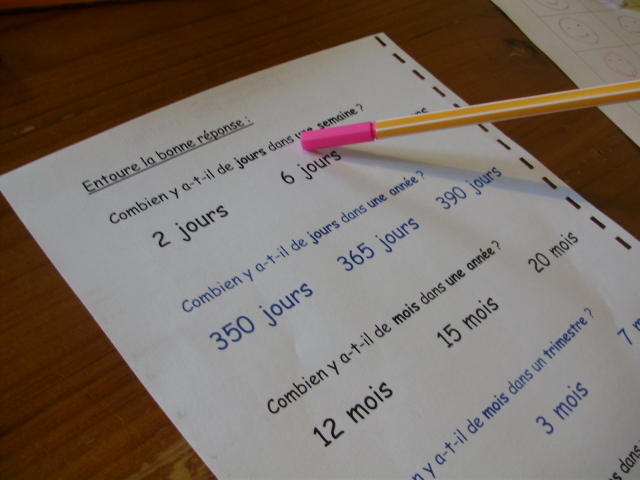 Entoure la bonne réponse :
Combien y a-t-il de jours dans une semaine ?
2 jours 6 jours
Combien y a-t-il de jours dans une année ?
350 jours 365 jours 390 jours
Combien y a-t-il de mois dans une année ?
12 mois 15 mois 20 mois
y a-t-il de mois dans un trimestre ?
3 mois 7